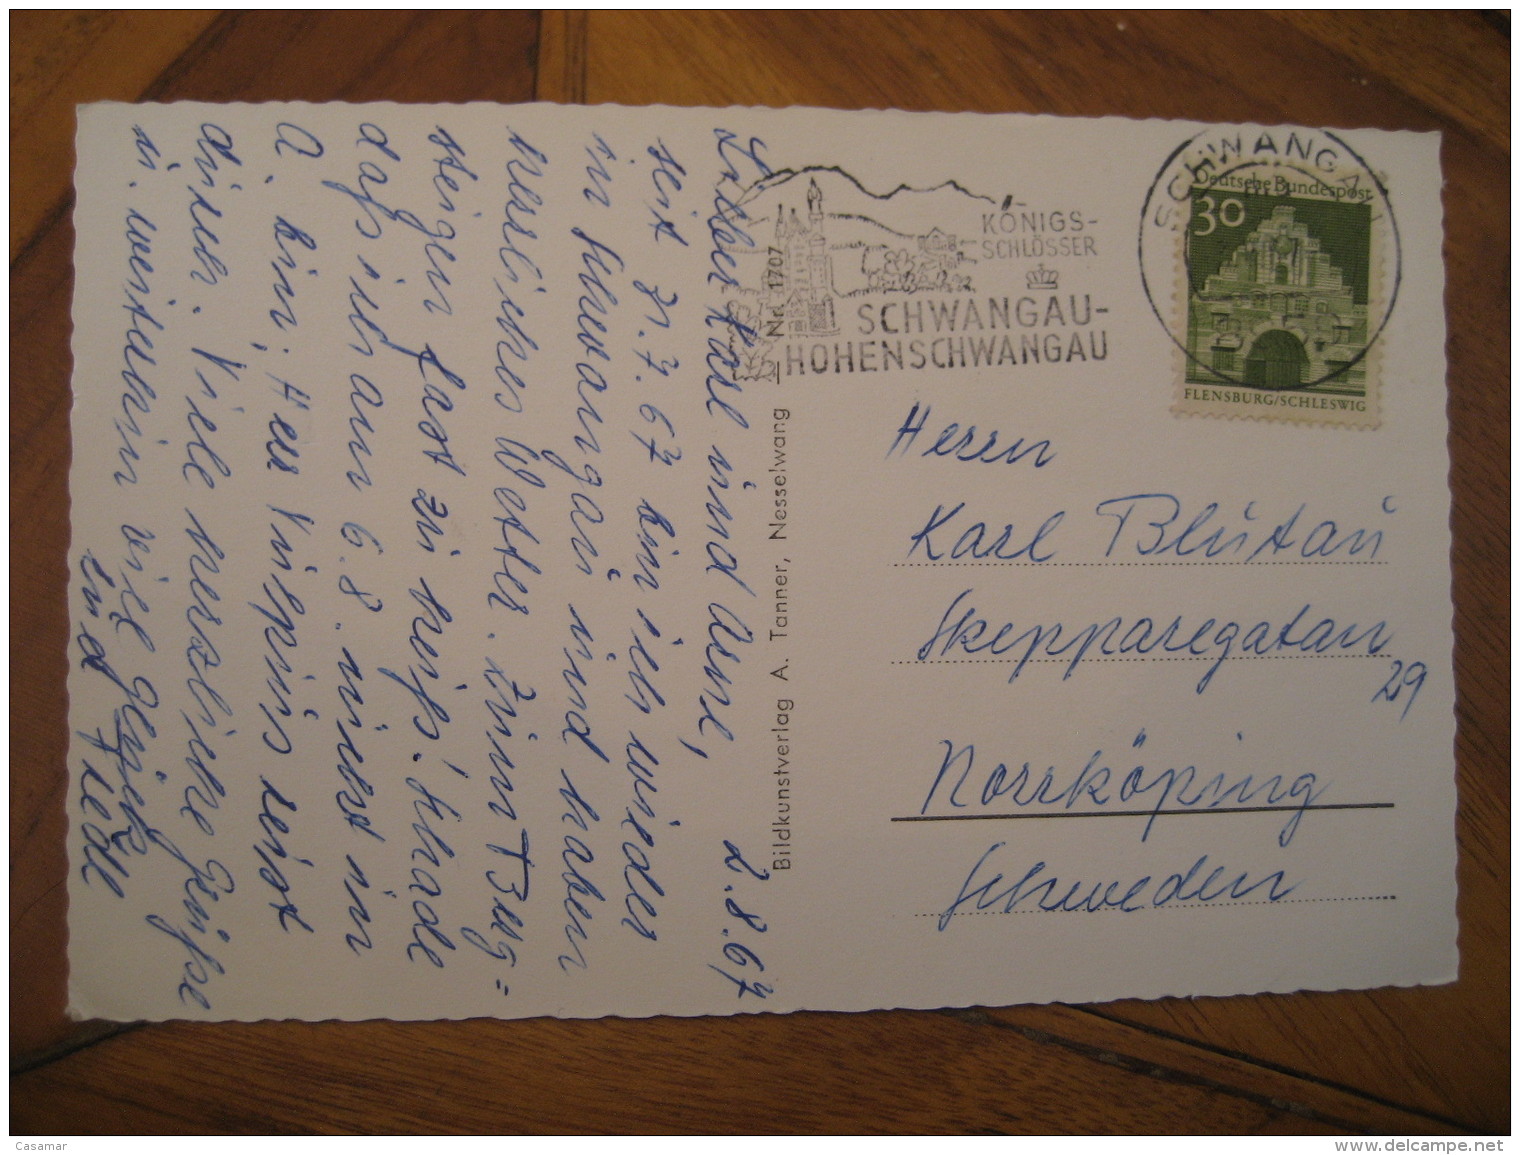 2.8.67
Lieber Karl und Arne,
seit 31.7.67 bin ich wieder
in Schwangau und haben
herrliches Wetter. Zum Berg=
steigen fast zu heiß! Schade
daß ich am 6.8. nicht in
A. bin, Herr Vulpius reist
durch. Viele herzliche Grüße
u. weiterhin viel Glück
und
Fredl
Bildkunstverlag A. Tanner, Nesselwang — Nr. 1707
KÖNIGS-
SCHLÖSSER
SCHWANGAU-
HOHENSCHWANGAU
SCHWANGAU
Deutsche Bundespost
30
FLENSBURG/SCHLESWIG
Herrn
Karl Blutau
Skepparegatan
29
Norrköping
Schweden
Casamar
www.delcampe.net